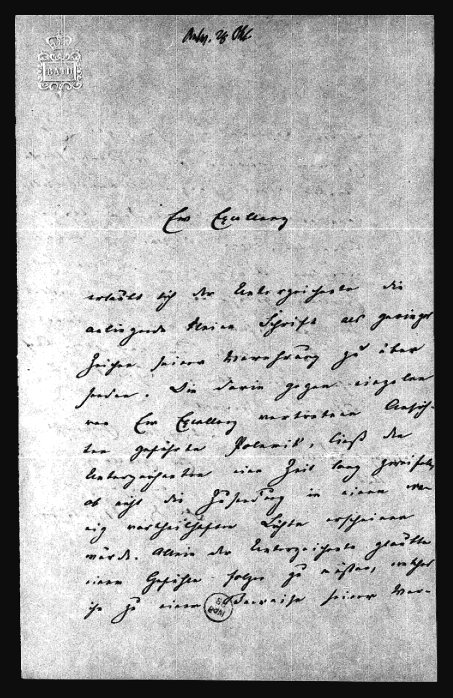 BATH
Antw. 28 Okt.
Ew Excellenz
erlaubt sich der Unterzeichnete die
anliegende kleine Schrift als geringes
Zeichen seiner Verehrung zu über
senden. Die darin gegen einzelne
von Ew Excellenz vertretene Ansich-
ten geführte Polemik, ließ den
Unterzeichneten eine Zeit lang zweifeln,
ob nicht die Zusendung in einem we-
nig vortheilhaften Lichte erscheinen
würde. Allein der Unterzeichnete glaubte
einem Gefühle folgen zu müssen, welches
ihn zu einem Beweise seiner Ver-